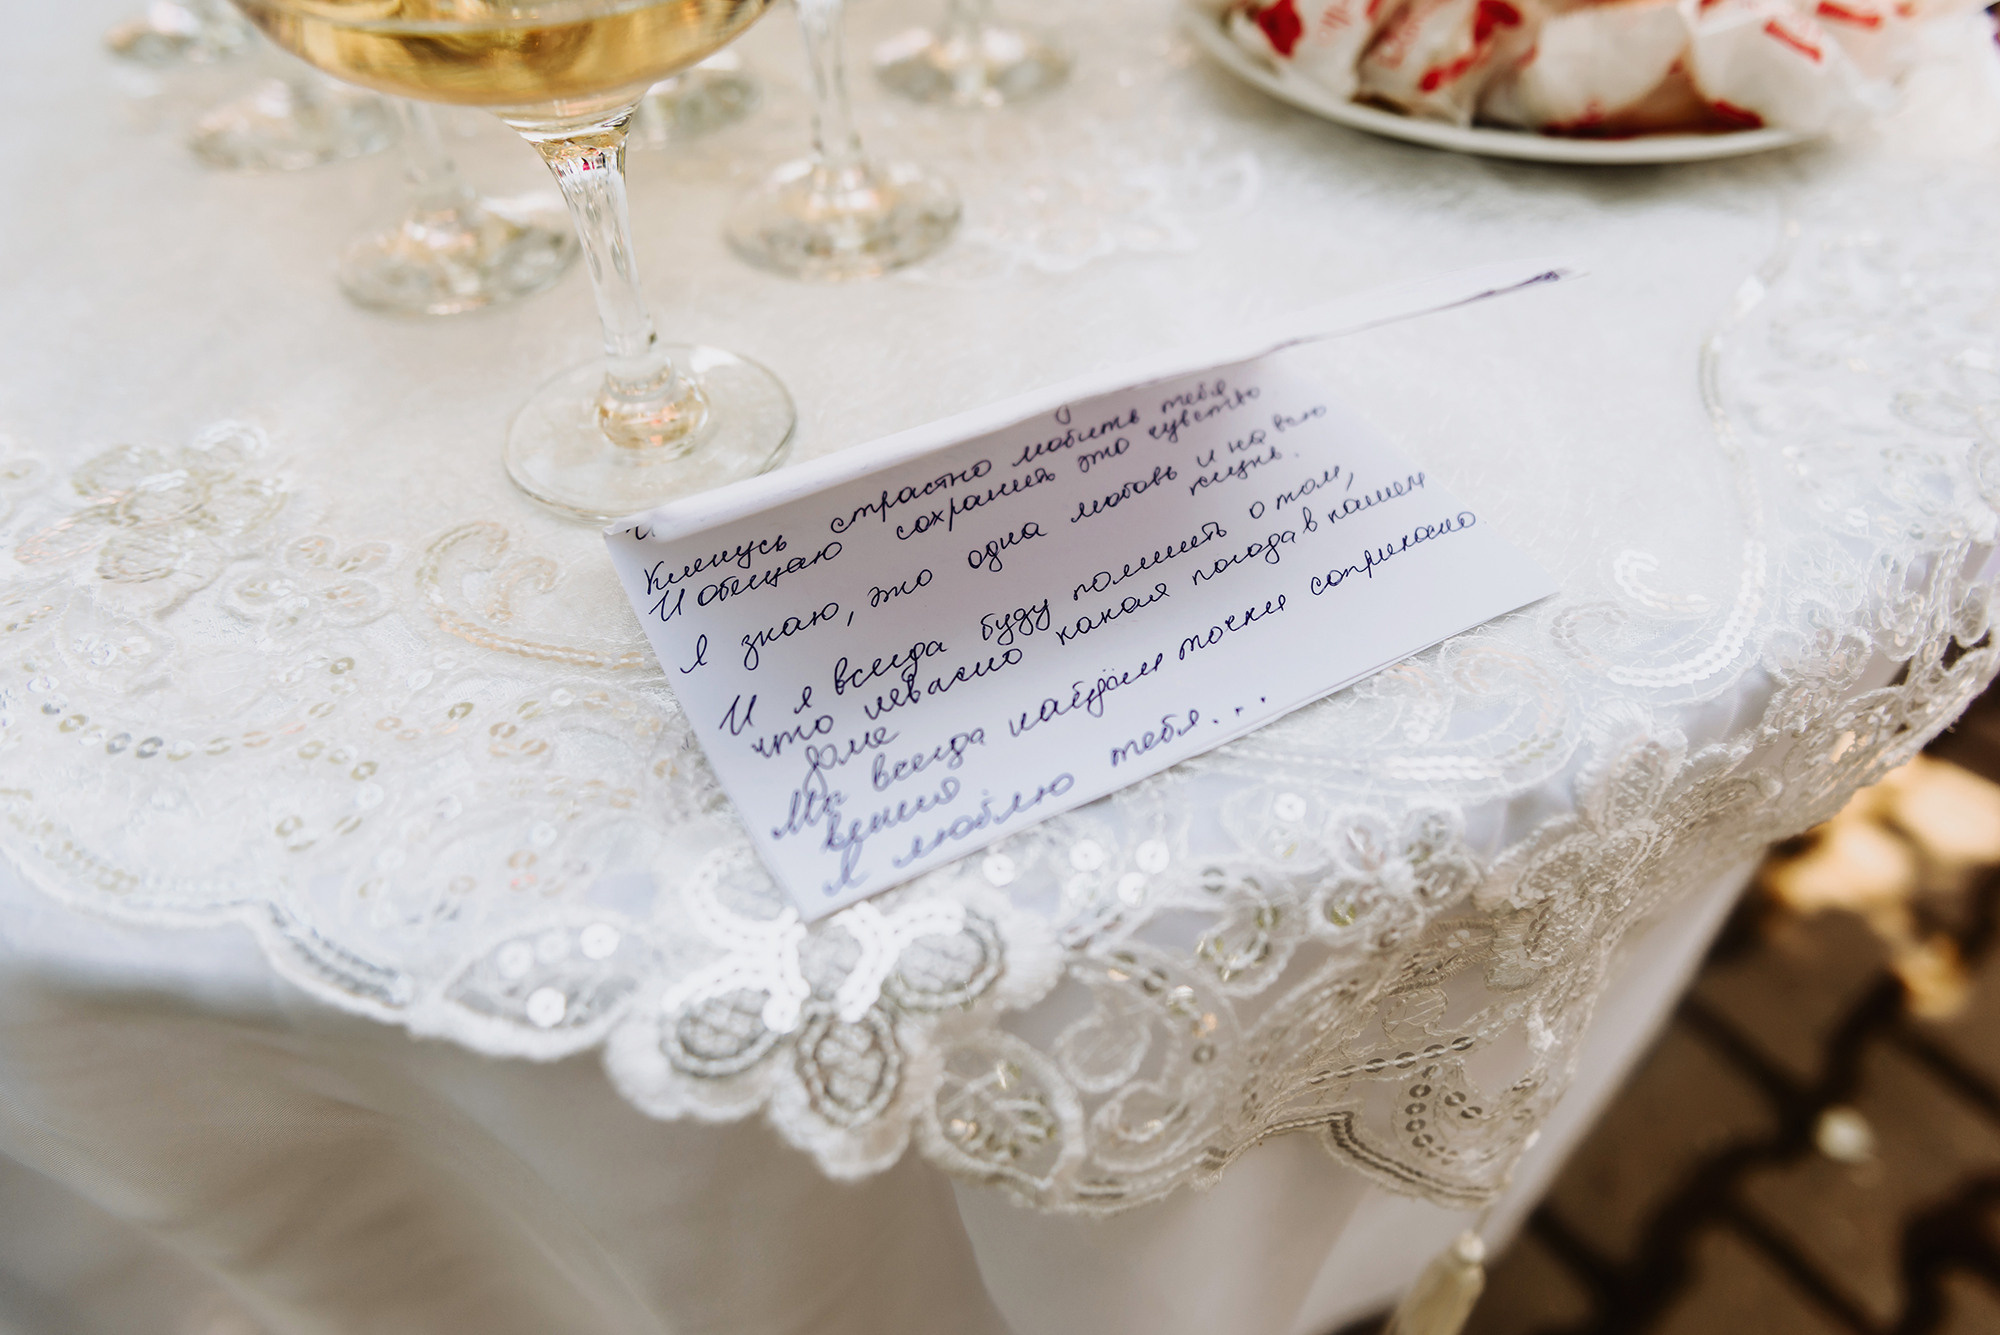 Клянусь страстно любить тебя
И обещаю сохранить это чувство
Я знаю, это одна любовь и на всю
жизнь.
И я всегда буду помнить о том,
что неважно какая погода в нашем
доме
Мы всегда найдём точки соприкосно
вения.
Я люблю тебя...